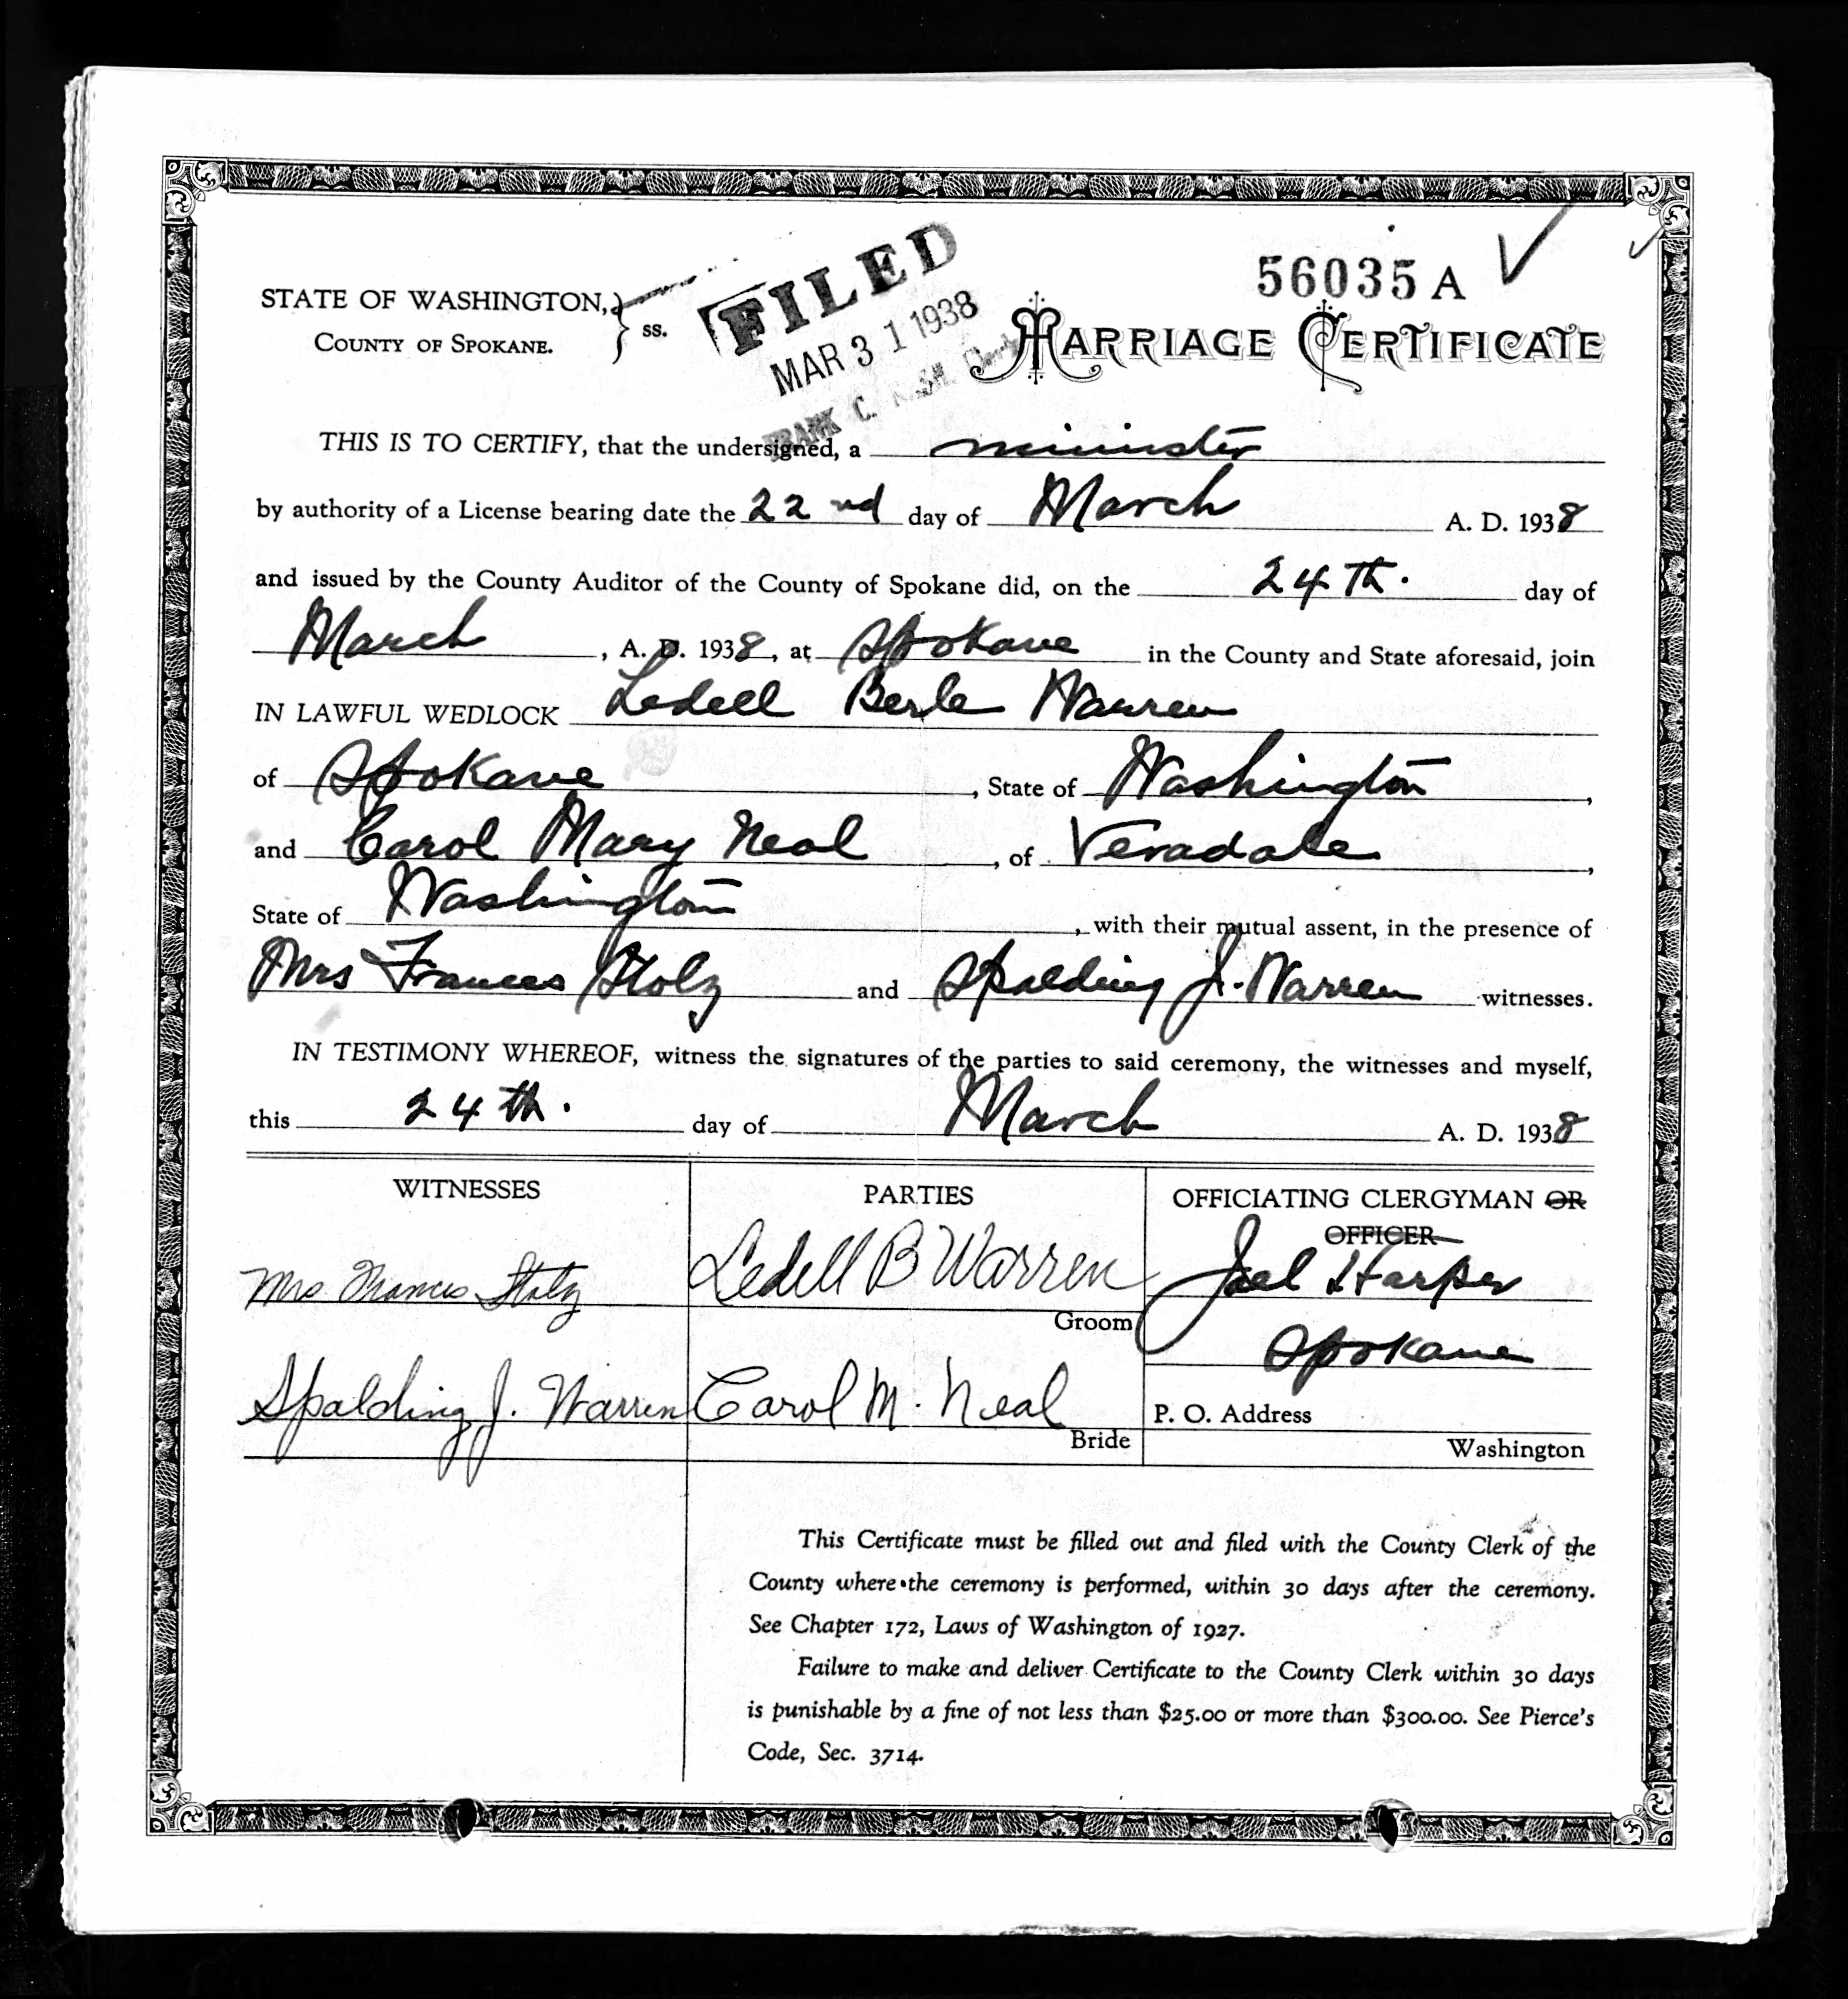 56035 A
FILED
MAR 31 1938
FRANK C. Clerk
STATE OF WASHINGTON,
COUNTY OF SPOKANE. } ss.
MARRIAGE CERTIFICATE
THIS IS TO CERTIFY, that the undersigned, a minister
by authority of a License bearing date the 22nd day of March A. D. 1938
and issued by the County Auditor of the County of Spokane did, on the 24th. day of
March, A. D. 1938, at Spokane in the County and State aforesaid, join
IN LAWFUL WEDLOCK Ledell Berle Warren
of Spokane, State of Washington,
and Carol Mary Neal, of Veradale,
State of Washington, with their mutual assent, in the presence of
Mrs Frances Stolz and Spalding J. Warren witnesses.
IN TESTIMONY WHEREOF, witness the signatures of the parties to said ceremony, the witnesses and myself,
this 24th. day of March A. D. 1938
WITNESSES
Mrs Frances Stolz
Spalding J. Warren
PARTIES
Ledell B Warren
Groom
Carol M. Neal
Bride
OFFICIATING CLERGYMAN OR
OFFICER
Joel Harper
Spokane
P. O. Address
Washington
This Certificate must be filled out and filed with the County Clerk of the
County where the ceremony is performed, within 30 days after the ceremony.
See Chapter 172, Laws of Washington of 1927.
Failure to make and deliver Certificate to the County Clerk within 30 days
is punishable by a fine of not less than $25.00 or more than $300.00. See Pierce's
Code, Sec. 3714.